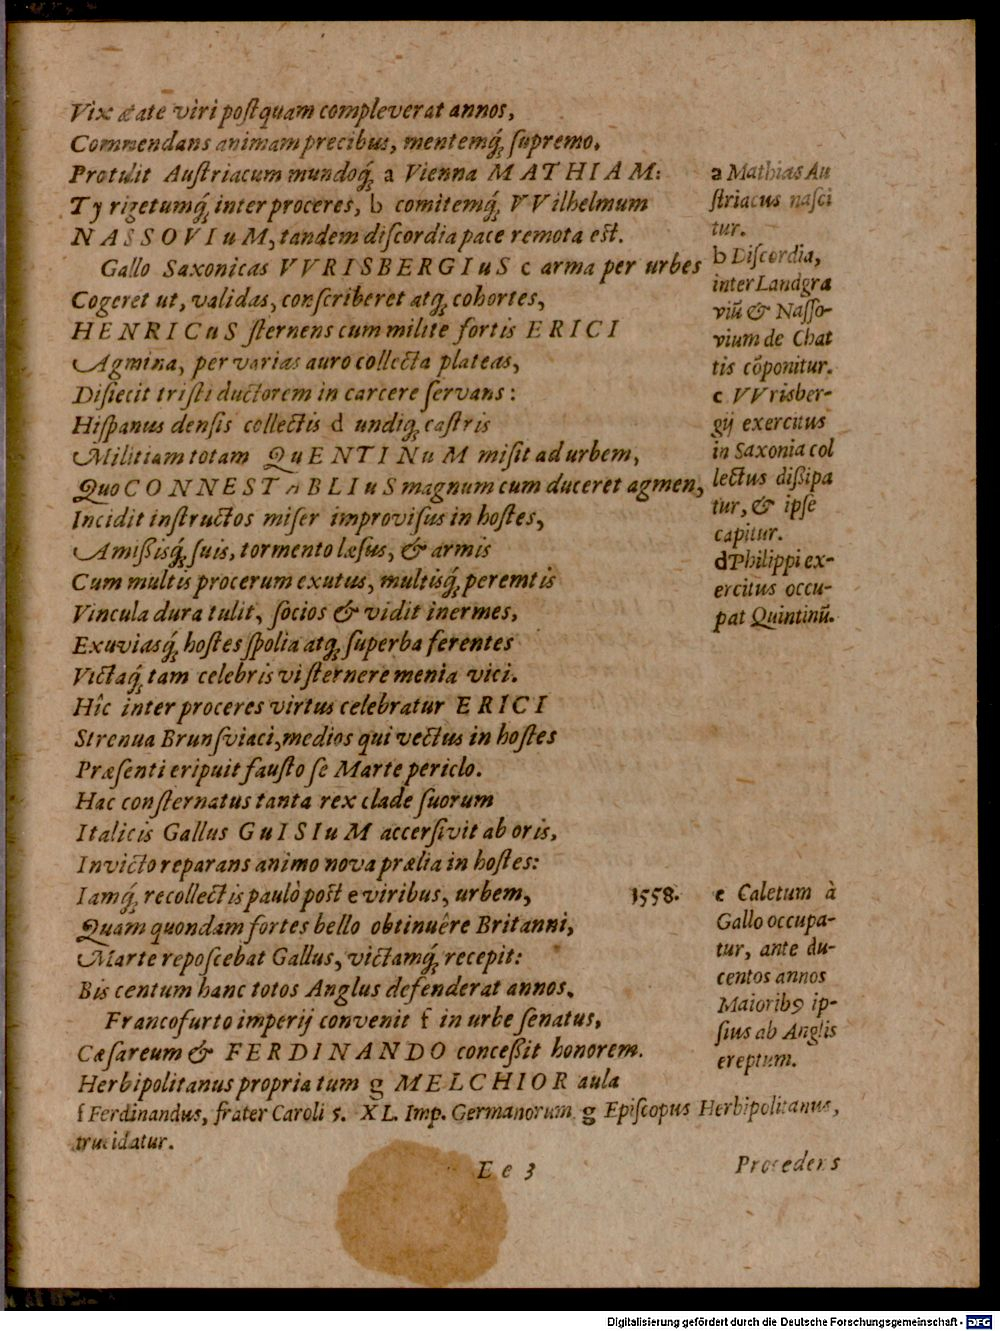 Vix ætate viri poſtquam compleverat annos,
Commendans animam precibus, mentemq́; ſupremo.
Protulit Auſtriacum mundoq́; a Vienna MATHIAM:
Tyrigetumq́; inter proceres, b comitemq́; VVilhelmum
NASSOVIuM, tandem diſcordia pace remota eſt.
Gallo Saxonicas VVRISBERGIuS c arma per urbes
Cogeret ut, validas, conſcriberet atq; cohortes,
HENRICuS ſternens cum milite fortis ERICI
Agmina, per varias auro collecta plateas,
Diſiecit triſti ductorem in carcere ſervans:
Hiſpanus denſis collectis d undiq; caſtris
Militiam totam QuENTINuM miſit ad urbem,
Quo CONNESTABLIuS magnum cum duceret agmen,
Incidit inſtructos miſer improviſus in hoſtes,
Amißisq́; ſuis, tormento læſus, & armis
Cum multis procerum exutus, multisq́; peremtis
Vincula dura tulit, ſocios & vidit inermes,
Exuviasq́; hoſtes ſpolia atq; ſuperba ferentes
Victaq́; tam celebris vi ſternere menia vici.
Hîc inter proceres virtus celebratur ERICI
Strenua Brunſviaci, medios qui vectus in hoſtes
Præſenti eripuit fauſto ſe Marte periclo.
Hac conſternatus tanta rex clade ſuorum
Italicis Gallus GuISIuM accerſivit ab oris,
Invicto reparans animo nova prælia in hoſtes:
Iamq́; recollectis paulò poſt e viribus, urbem,
Quam quondam fortes bello obtinuêre Britanni,
Marte repoſcebat Gallus, victamq́; recepit:
Bis centum hanc totos Anglus defenderat annos.
Francofurto imperij convenit f in urbe ſenatus,
Cæſareum & FERDINANDO conceßit honorem.
Herbipolitanus propria tum g MELCHIOR aula
a Mathias Au
ſtriacus naſci
tur.
b Diſcordia,
inter Landgra
viũ & Naſſo-
vium de Chat
tis cõponitur.
c VVrisber-
gij exercitus
in Saxonia col
lectus dißipa
tur, & ipſe
capitur.
d Philippi ex-
ercitus occu-
pat Quintinũ.
1558.
e Caletum à
Gallo occupa-
tur, ante du-
centos annos
Maiorib9 ip-
ſius ab Anglis
ereptum.
f Ferdinandus, frater Caroli 5. XL. Imp. Germanorum g Epiſcopus Herbipolitanus,
trucidatur.
Ee 3
Procedens
Digitalisierung gefördert durch die Deutsche Forschungsgemeinschaft - DFG